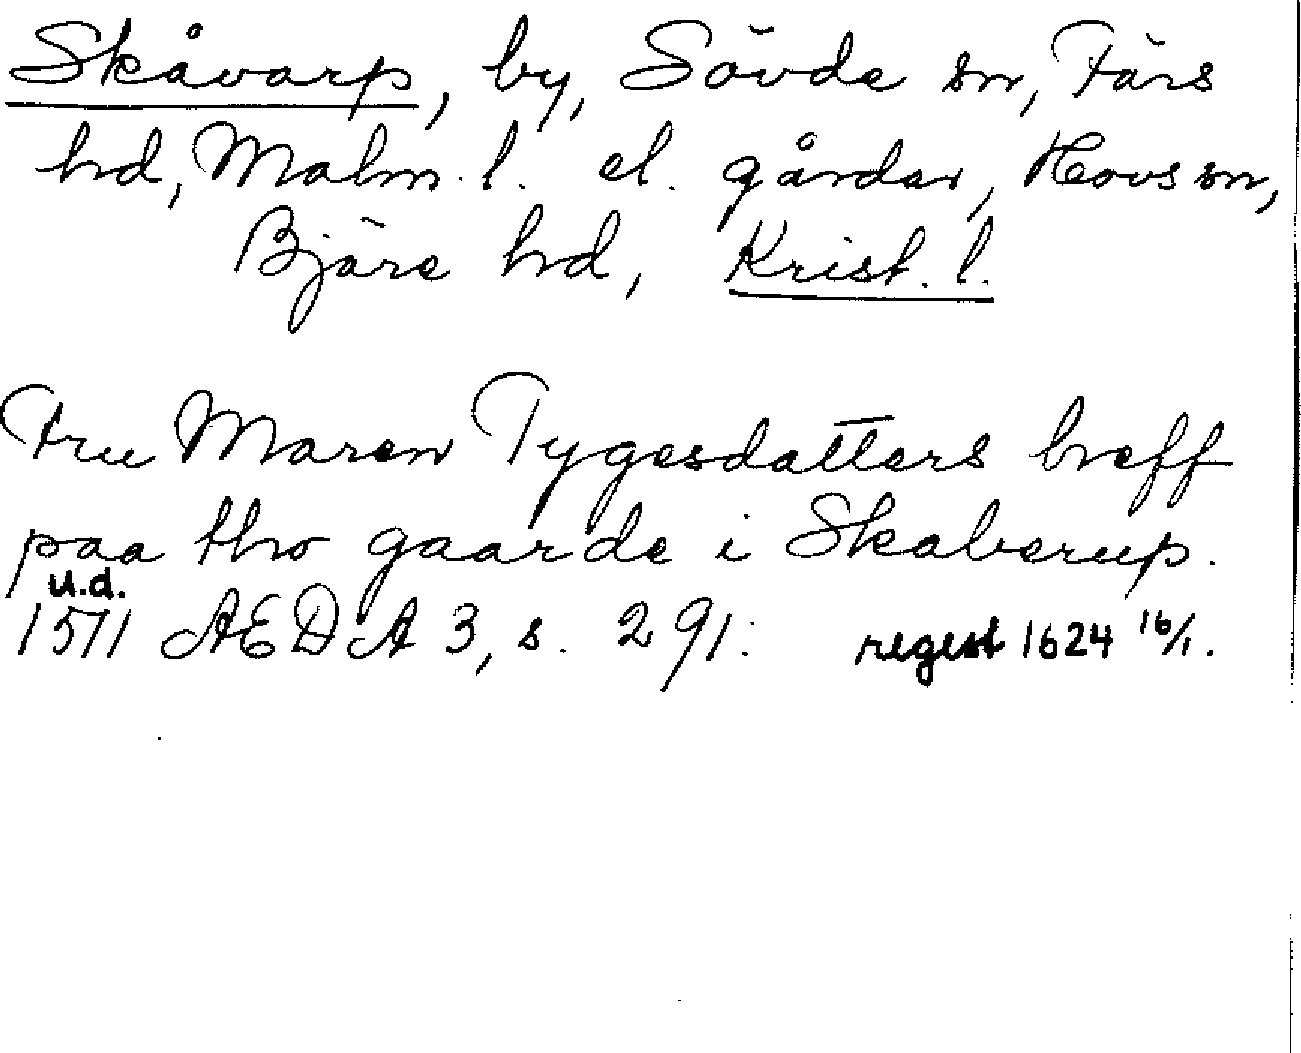 Skåvarp, by, Sövde sn, Färs
hd, Malm. l. el. gårdar, Hovs sn,
Bjäre hd, Krist. l.
Fru Maren Tygesdatters breff
paa tho gaarde i Skaberup.
u.d.
1571 AEDA 3, s. 291. regest 1624 16/1.